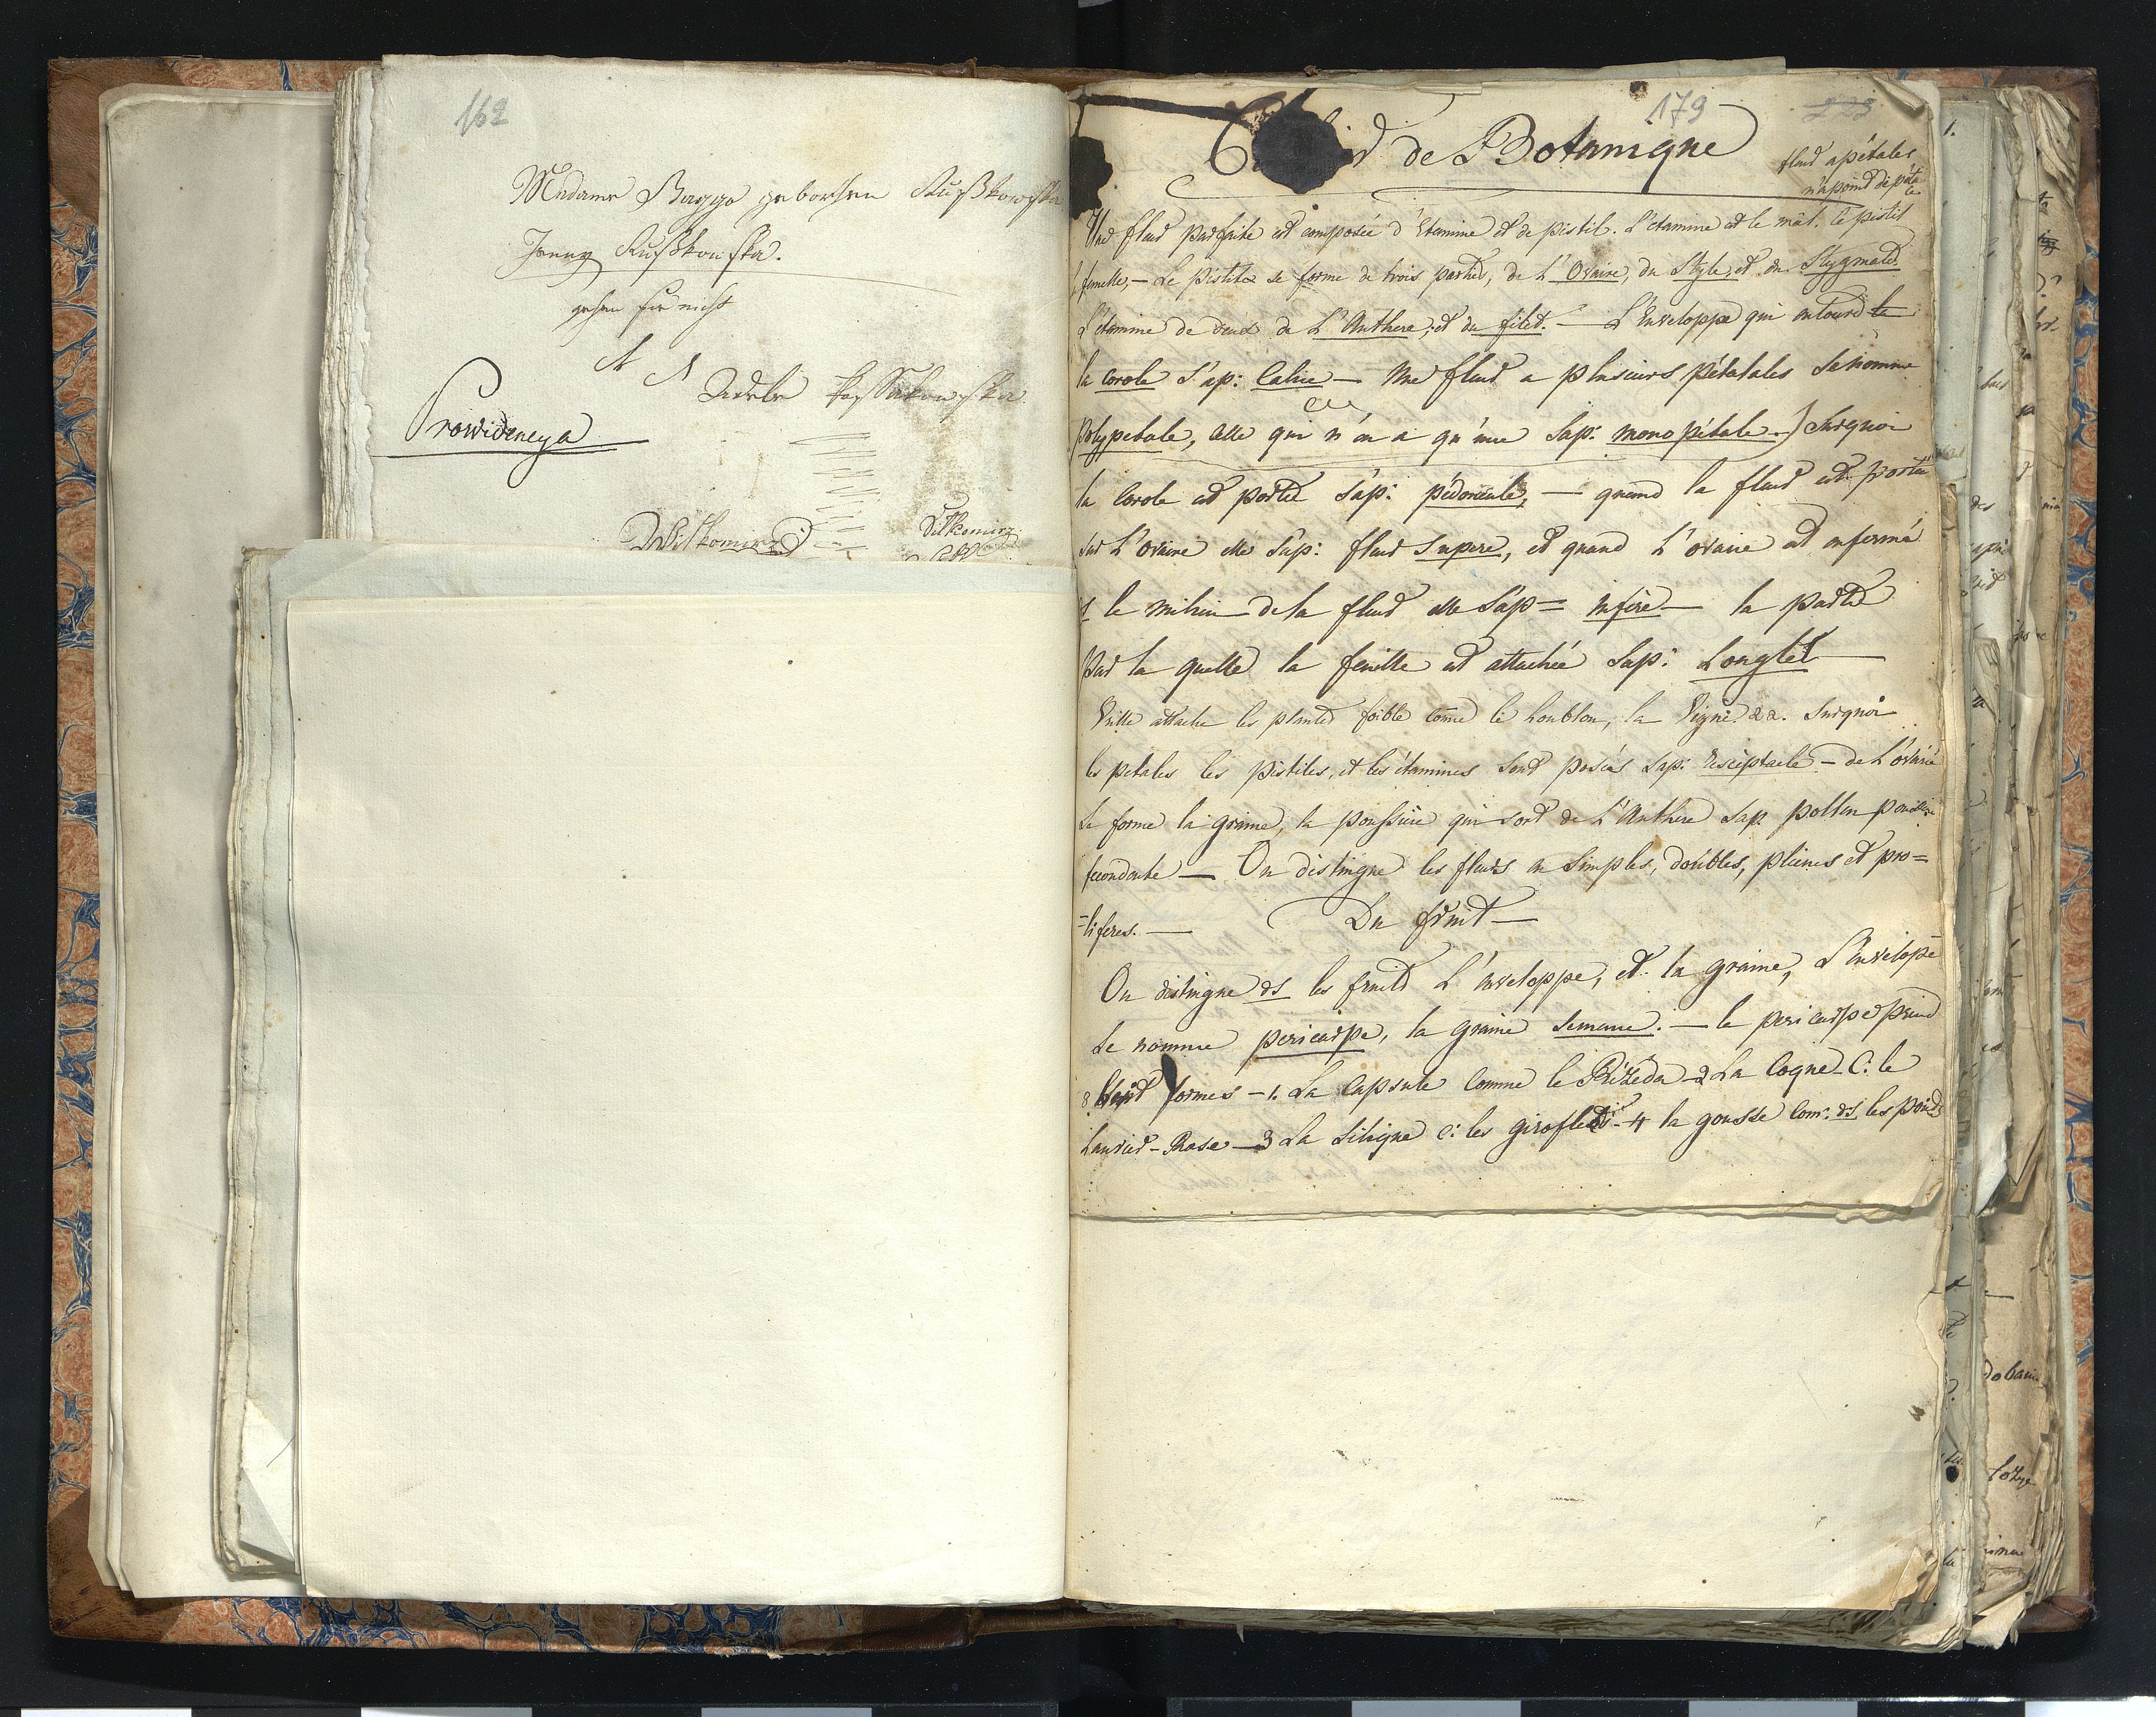 162
Madame Bagge gebohrne
Jenny
gehen Sie nicht
A A Adele Kossakowska
Prowidencya
Wilkomirz
Wilkomirz
179
223
de Botanique
fleur apétales
n'a point de péta
les
Une fleur parfaite est composée d'Etamine et de pistil. L'étamine est le mâl. le pistil
femelle, – Le Pistile se forme de trois parties, de L'Ovaire, du Style, et du Stygmate.
L'étamine de deux de L'Anthere, et du filet. – L'Enveloppe qui entoure le
la corole S'ap: Calice – Une fleur a plusieurs pétatales Se nomme
Polypetale, celle qui n'en a qu'une S'ap: monopétale.) Surquoi
la Corole est portée S'ap: pédoncule, – quand la fleur est portée
sur L'ovaire elle S'ap: fleur Supere, et quand L'ovaire est enfermé
ds le milieu de la fleur elle S'ap= infere – la partie
par la quelle la feuille est attachée S'ap: Longlet
Vrille attache les plantes foible come le houblon, la Vigne &a. Surquoi
les petales les pistiles, et les étamines sont posées S'ap: réceptacle – de L'ovaire
se forme la graine, la poussiere qui sort de L'Anthere S'ap. pollen poussiere
fecondante – On distingue les fleurs en Simples, doubles, pleines et pro=
=liferes. – Du fruit –
On distingue ds les fruits L'enveloppe, et la graine, L'Envelope
Se nomme pericarpe, la graine Semence. – le pericarpe prend
8 formes – 1. La Capsule Comme le Rézéda – 2 La Coque C: le
Laurier-Rose – 3 La Silique C: les giroflées – 4 la gousse Com: ds les poids